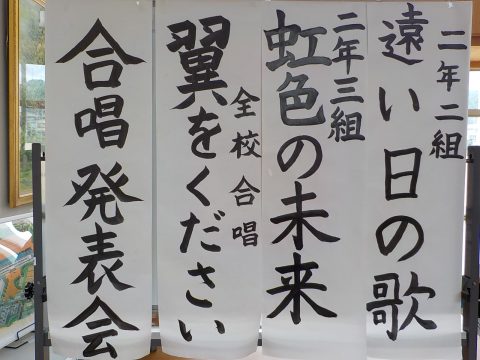 二年二組
遠い日の歌
二年三組
虹色の未来
全校合唱
翼をください
合唱発表会